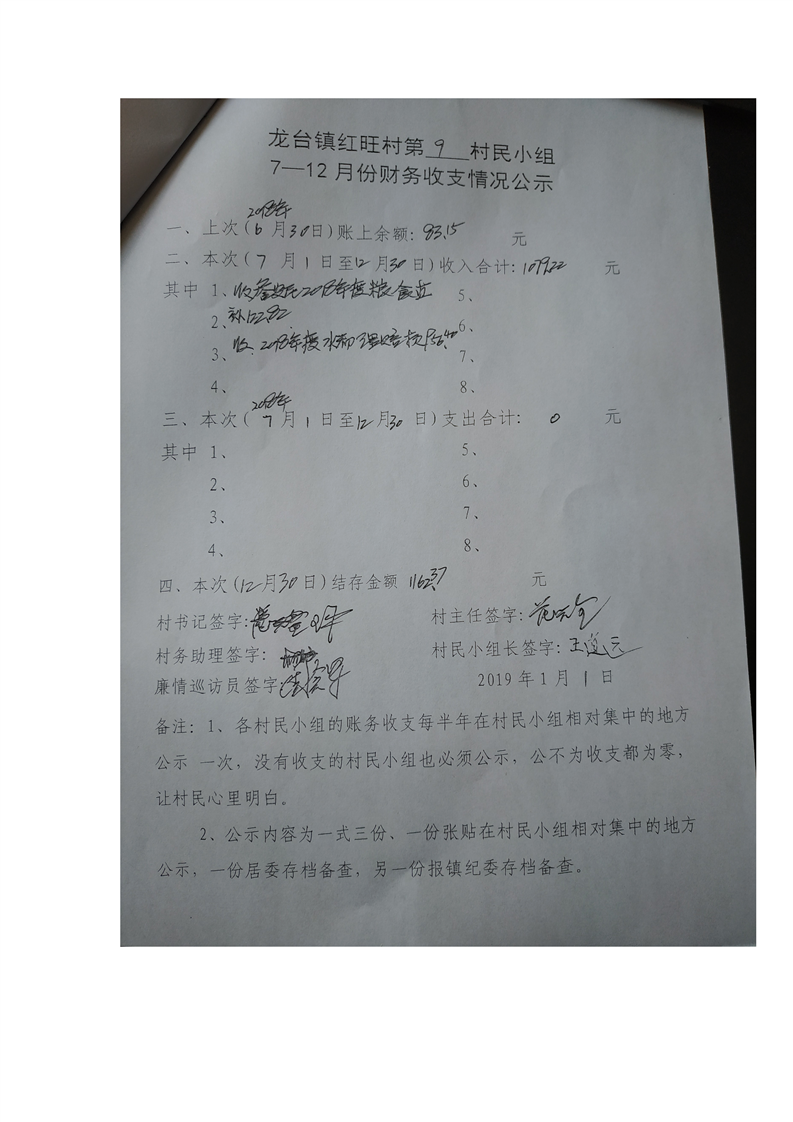 龙台镇红旺村第 9 村民小组
7—12月份财务收支情况公示
2018年
一、上次(6月30日)账上余额：83.15 元
二、本次(7月1日至12月30日)收入合计：1079.22 元
其中 1、收 2018年 粮食直 5、
2、补122.82 6、
3、收2018年度水稻 956.40 7、
4、 8、
2018年
三、本次(7月1日至12月30日)支出合计： 0 元
其中 1、 5、
2、 6、
3、 7、
4、 8、
四、本次(12月30日)结存金额 1162.37 元
村书记签字： 村主任签字：
村务助理签字： 村民小组长签字：王道云
廉情巡访员签字：
2019年1月1日
备注：1、各村民小组的账务收支每半年在村民小组相对集中的地方
公示 一次，没有收支的村民小组也必须公示，公不为收支都为零，
让村民心里明白。
2、公示内容为一式三份、一份张贴在村民小组相对集中的地方
公示，一份居委存档备查，另一份报镇纪委存档备查。